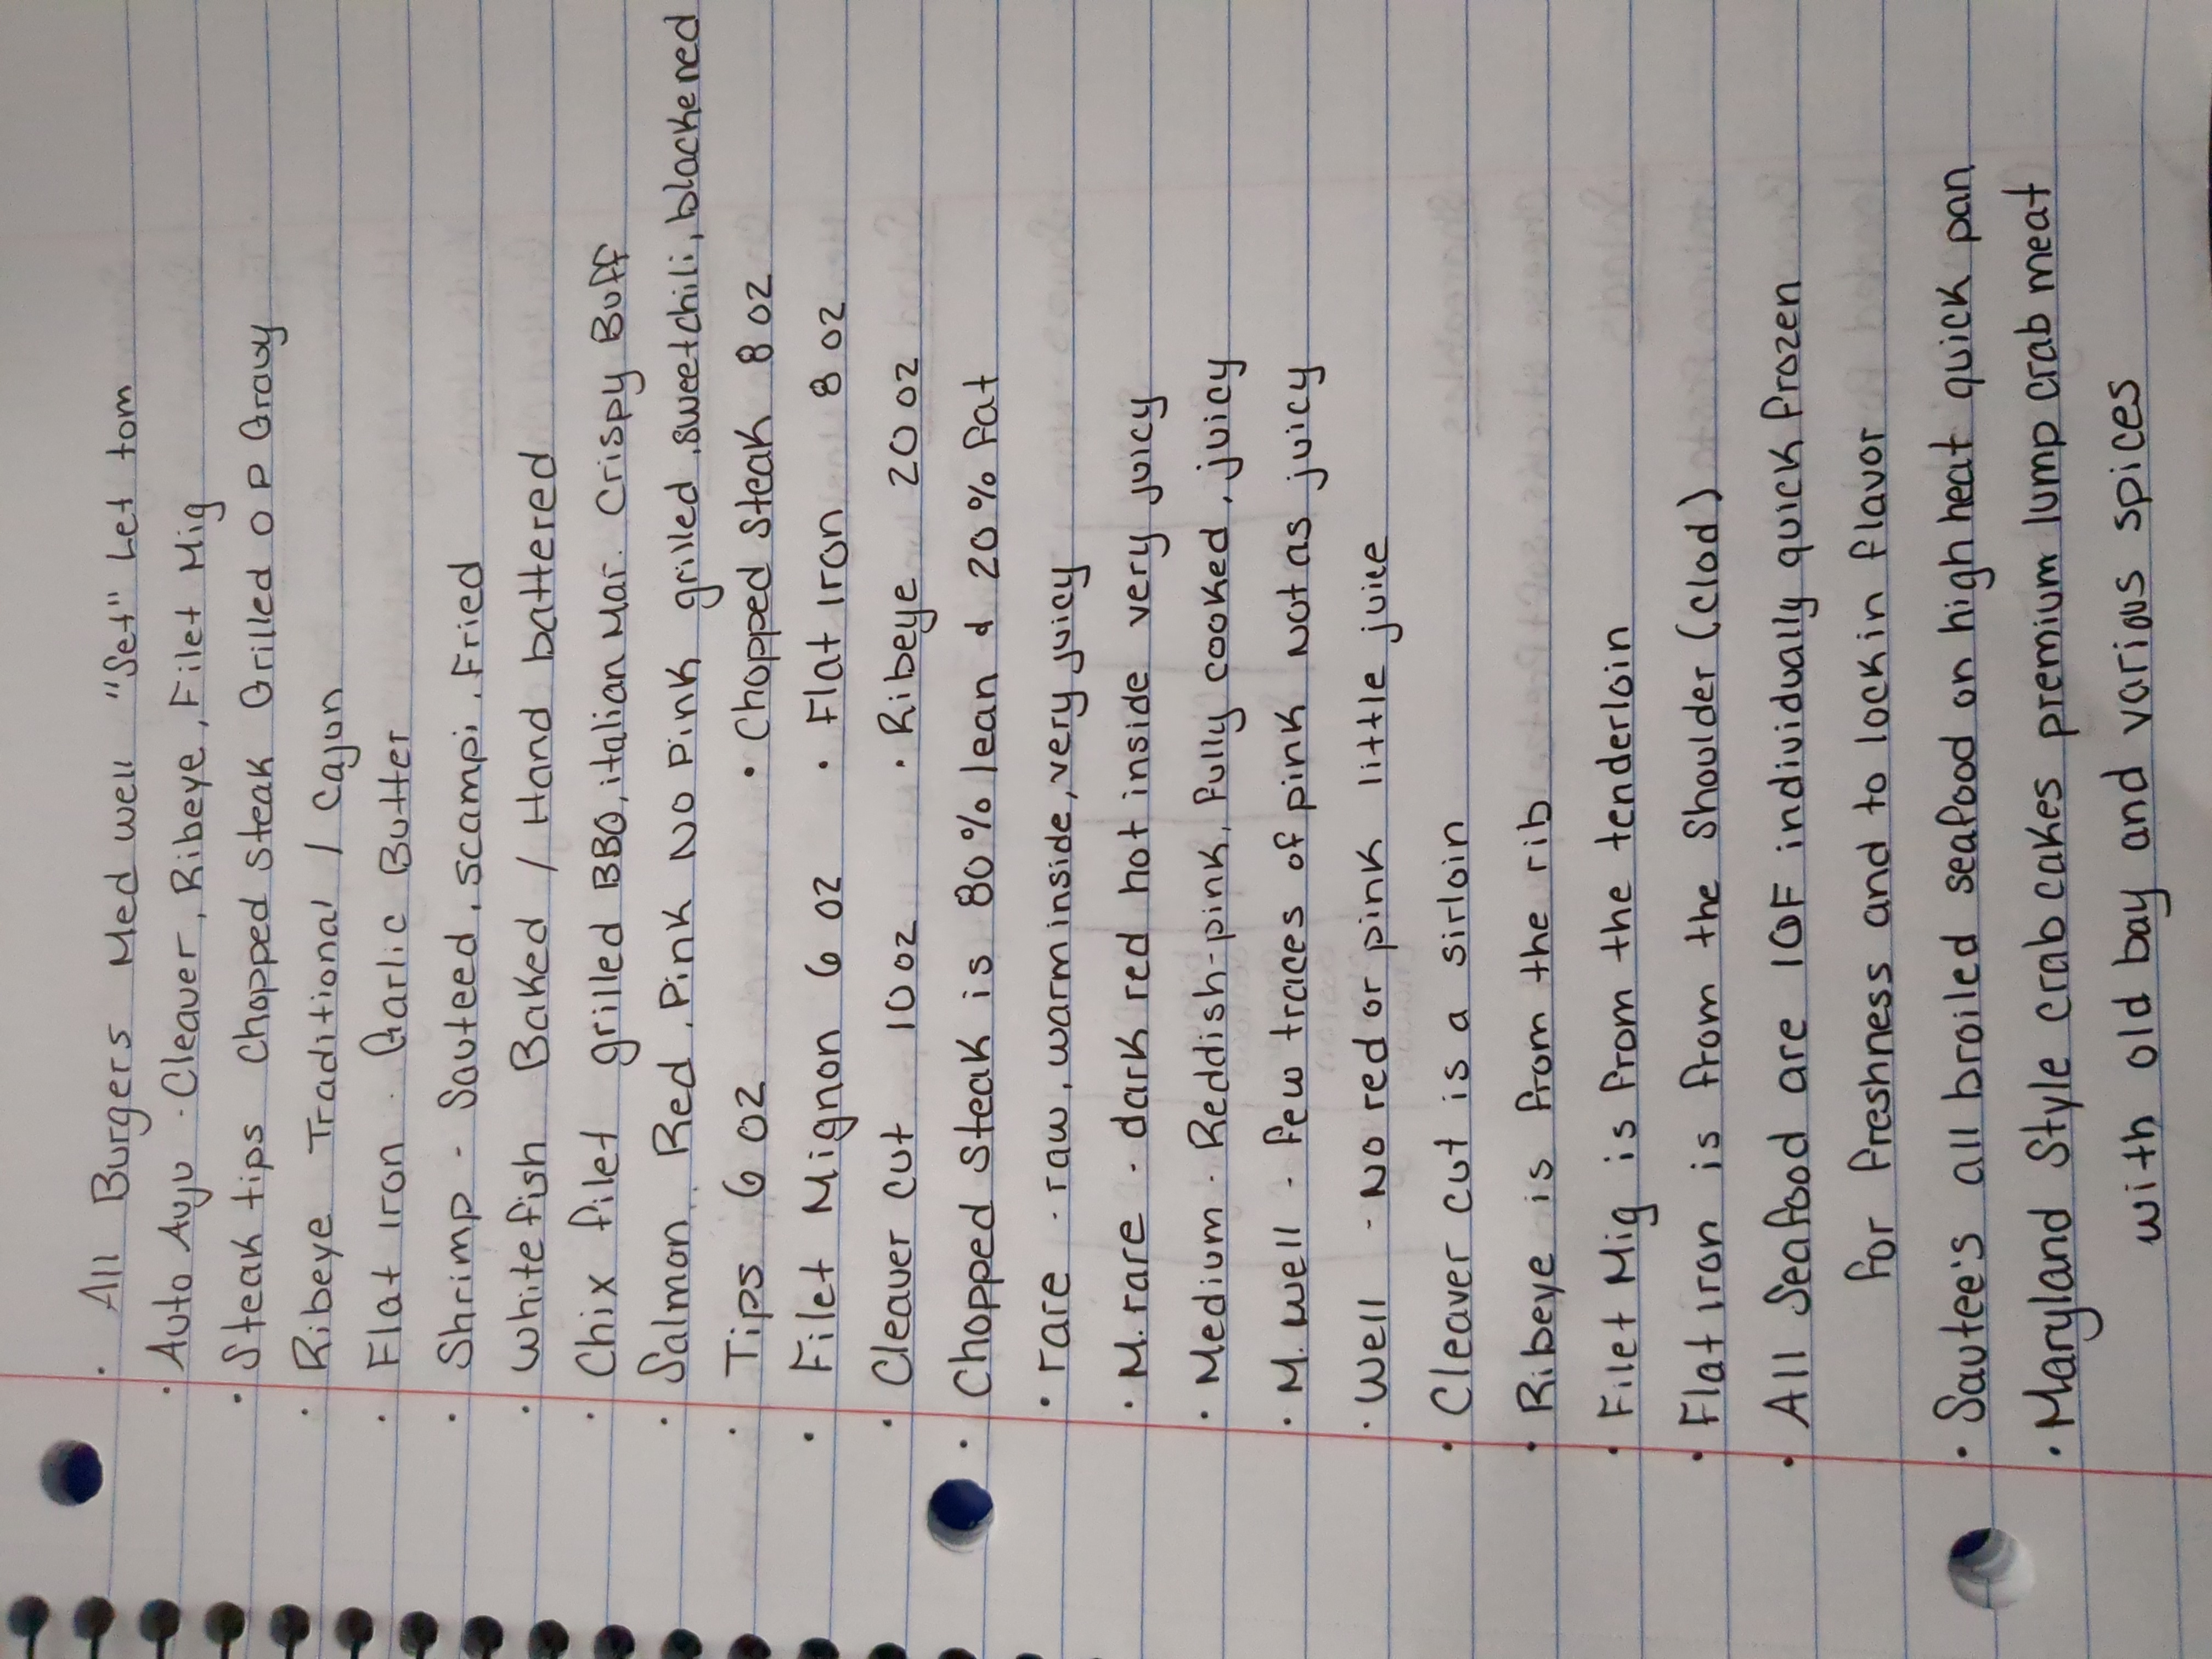 · All Burgers Med well "Set" Let tom
· Auto Auju - Cleaver, Ribeye, Filet Mig
· Steak tips Chopped steak Grilled O P Gravy
· Ribeye Traditional / Cajun
· Flat iron - Garlic Butter
· Shrimp - Sauteed, scampi, Fried
· White fish Baked / Hand battered
· Chix filet grilled BBQ, italian Mar. Crispy Buff
· Salmon Red, Pink No Pink grilled, sweet chili, blackened
· Tips 6 oz · Chopped steak 8 oz
· Filet Mignon 6 oz · Flat iron 8 oz
· Cleaver cut 10 oz · Ribeye 20 oz
· Chopped steak is 80% lean & 20% fat
· rare - raw, warm inside, very juicy
· M. rare - dark red hot inside very juicy
· Medium - Reddish-pink, fully cooked, juicy
· M. well - few traces of pink Not as juicy
· Well - No red or pink little juice
· Cleaver cut is a sirloin
· Ribeye is from the rib
· Filet Mig is from the tenderloin
· Flat iron is from the Shoulder (clod)
· All Seafood are IQF individually quick frozen
for freshness and to lock in flavor
· Sautee's all broiled seafood on high heat quick pan
· Maryland Style crab cakes premium lump crab meat
with old bay and various spices